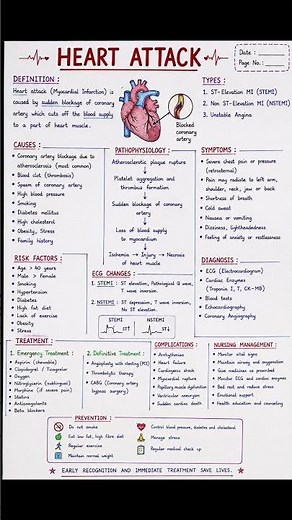 HEART ATTACK
Date :
Page No.:
DEFINITION :
Heart attack (Myocardial Infarction) is
caused by sudden blockage of coronary
artery which cuts off the blood supply
to a part of heart muscle.
Blocked
coronary
artery
TYPES :
1. ST- Elevation MI (STEMI)
2. Non ST-Elevation MI (NSTEMI)
3. Unstable Angina
CAUSES :
• Coronary artery blockage due to
atherosclerosis (most common)
• Blood clot (thrombosis)
• Spasm of coronary artery
• High blood pressure
• Smoking
• Diabetes mellitus
• High cholesterol
• Obesity, Stress
• Family history
PATHOPHYSIOLOGY :
Atherosclerotic plaque rupture
Platelet aggregation and
thrombus formation
Sudden blockage of coronary
artery
Loss of blood supply
to myocardium
Ischemia → Injury → Necrosis
of heart muscle
SYMPTOMS :
• Severe chest pain or pressure
(retrosternal)
• Pain may radiate to left arm,
shoulder, neck, jaw or back
• Shortness of breath
• Cold sweat
• Nausea or vomiting
• Dizziness, lightheadedness
• Feeling of anxiety or restlessness
RISK FACTORS :
• Age > 40 years
• Male > Female
• Smoking
• Hypertension
• Diabetes
• High fat diet
• Lack of exercise
• Obesity
• Stress
ECG CHANGES :
1. STEMI : ST elevation, Pathological Q wave,
T wave inversion.
2. NSTEMI : ST depression, T wave inversion,
No ST elevation.
STEMI
ST↑
NSTEMI
ST↓
DIAGNOSIS :
• ECG (Electrocardiogram)
• Cardiac Enzymes
(Troponin I, T, CK-MB)
• Blood tests
• Echocardiography
• Coronary Angiography
TREATMENT :
1. Emergency Treatment :
• Aspirin (chewable)
• Clopidogrel / Ticagrelor
• Oxygen
• Nitroglycerin (sublingual)
• Morphine (if severe pain)
• Statins
• Anticoagulants
• Beta blockers
2. Definitive Treatment :
• Angioplasty with stenting (MI)
• Thrombolytic therapy
• CABG (Coronary artery
bypass surgery)
COMPLICATIONS :
• Arrhythmias
• Heart failure
• Cardiogenic shock
• Myocardial rupture
• Papillary muscle dysfunction
• Ventricular aneurysm
• Sudden cardiac death
NURSING MANAGEMENT :
• Monitor vital signs
• Maintain airway and oxygenation
• Give medicines as prescribed
• Monitor ECG and cardiac enzymes
• Bed rest and reduce stress
• Emotional support
• Health education and counseling
PREVENTION :
Do not smoke
Eat low fat, high fibre diet
Regular exercise
Maintain normal weight
Control blood pressure, diabetes and cholesterol
Manage stress
Regular medical check up
EARLY RECOGNITION AND IMMEDIATE TREATMENT SAVE LIVES.